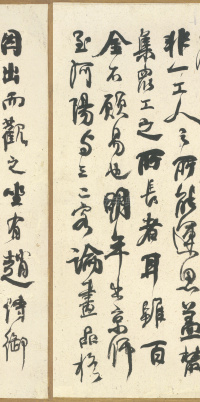 非一工人之所能運思蓋藂
集眾工之所長者耳雖百
金不願易也明年出京師
至河陽与二三客論畫品格
因出而觀之坐有趙侍御